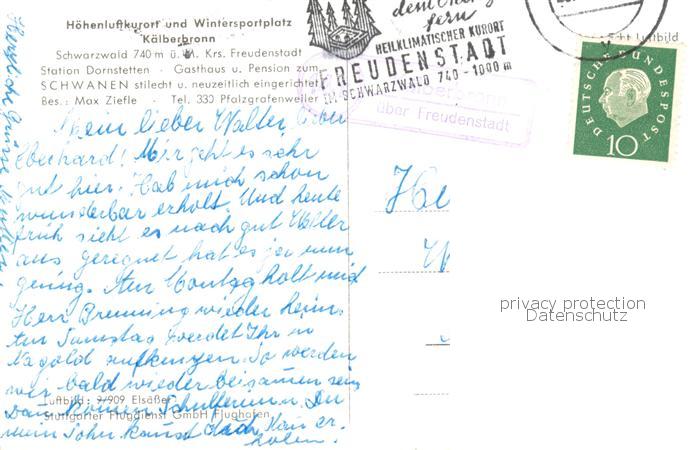 Höhenluftkurort und Wintersportplatz
Kälberbronn
Schwarzwald 740 m ü. M. Krs. Freudenstadt
Station Dornstetten · Gasthaus u. Pension zum
SCHWANEN stilecht u. neuzeitlich eingerichtet
Bes.: Max Ziefle · Tel. 330 Pfalzgrafenweiler
HEILKLIMATISCHER KURORT
FREUDENSTADT
IM SCHWARZWALD 740 - 1000 m
über Freudenstadt
Luftbild
DEUTSCHE BUNDESPOST
10
Mein lieber Walter, lieber
Eberhard! Mir geht es sehr
gut hier. Hab mich schon
wunderbar erholt. Und heute
früh sieht es nach gut Wetter
aus geregnet hat es ja nun
genug. Am Montag holt mich
Herr Brenning wieder heim.
Am Samstag werdet Ihr in
Nagold aufkreuzen. So werden
wir bald wieder beisamen sein
Dann können
mein Sohn kannst dich
holen.
Luftbild: 9/909 Elsäßer
Stuttgarter Flugdienst GmbH Flughafen
privacy protection
Datenschutz